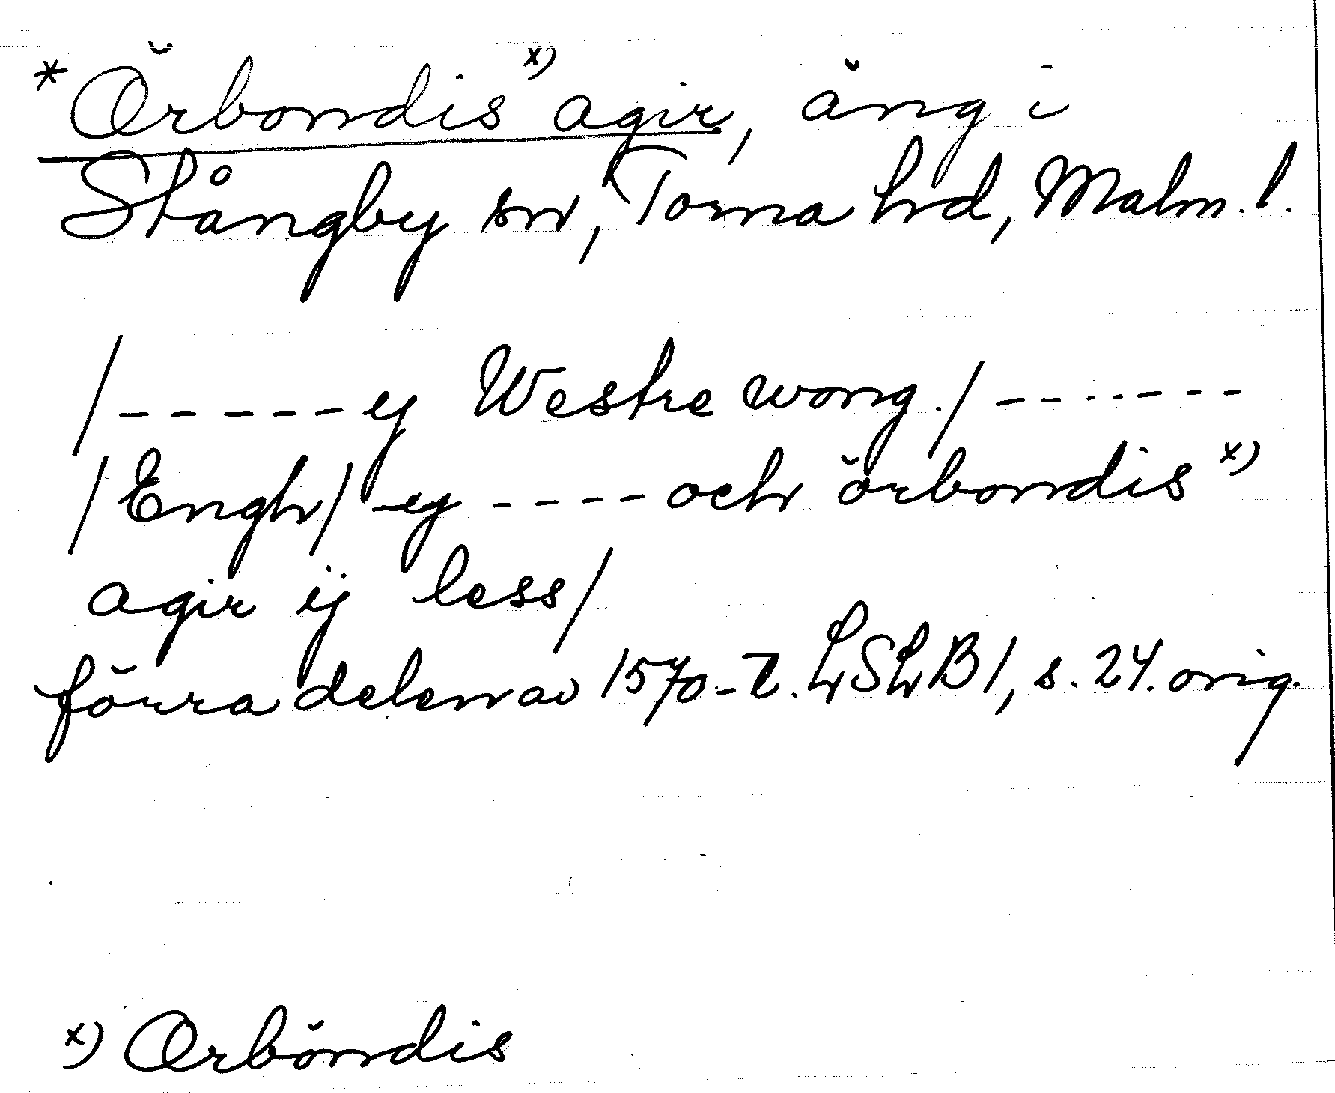 *Örbondis x) agir, äng i
Stångby sn, Torna hrd, Malm. l.
/-----ej Westre wong./-------
/Engh/ -ej ----och örbondis x)
agir ij less/
förra delen av 1570-t. LSLB1, s. 24. orig.
x) Orböndis